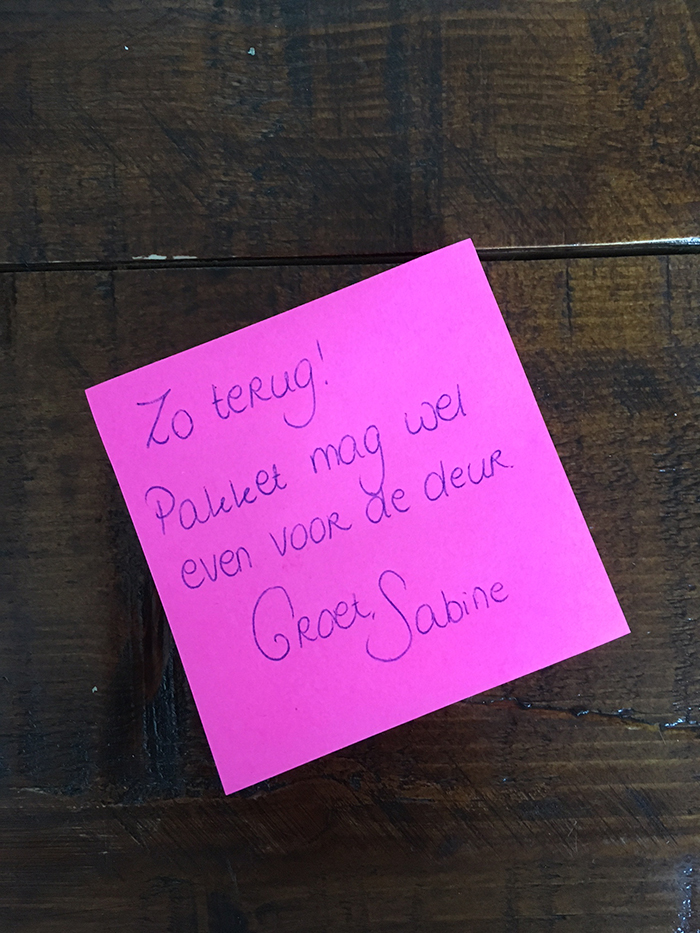 Zo terug!
Pakket mag wel
even voor de deur.
Groet, Sabine